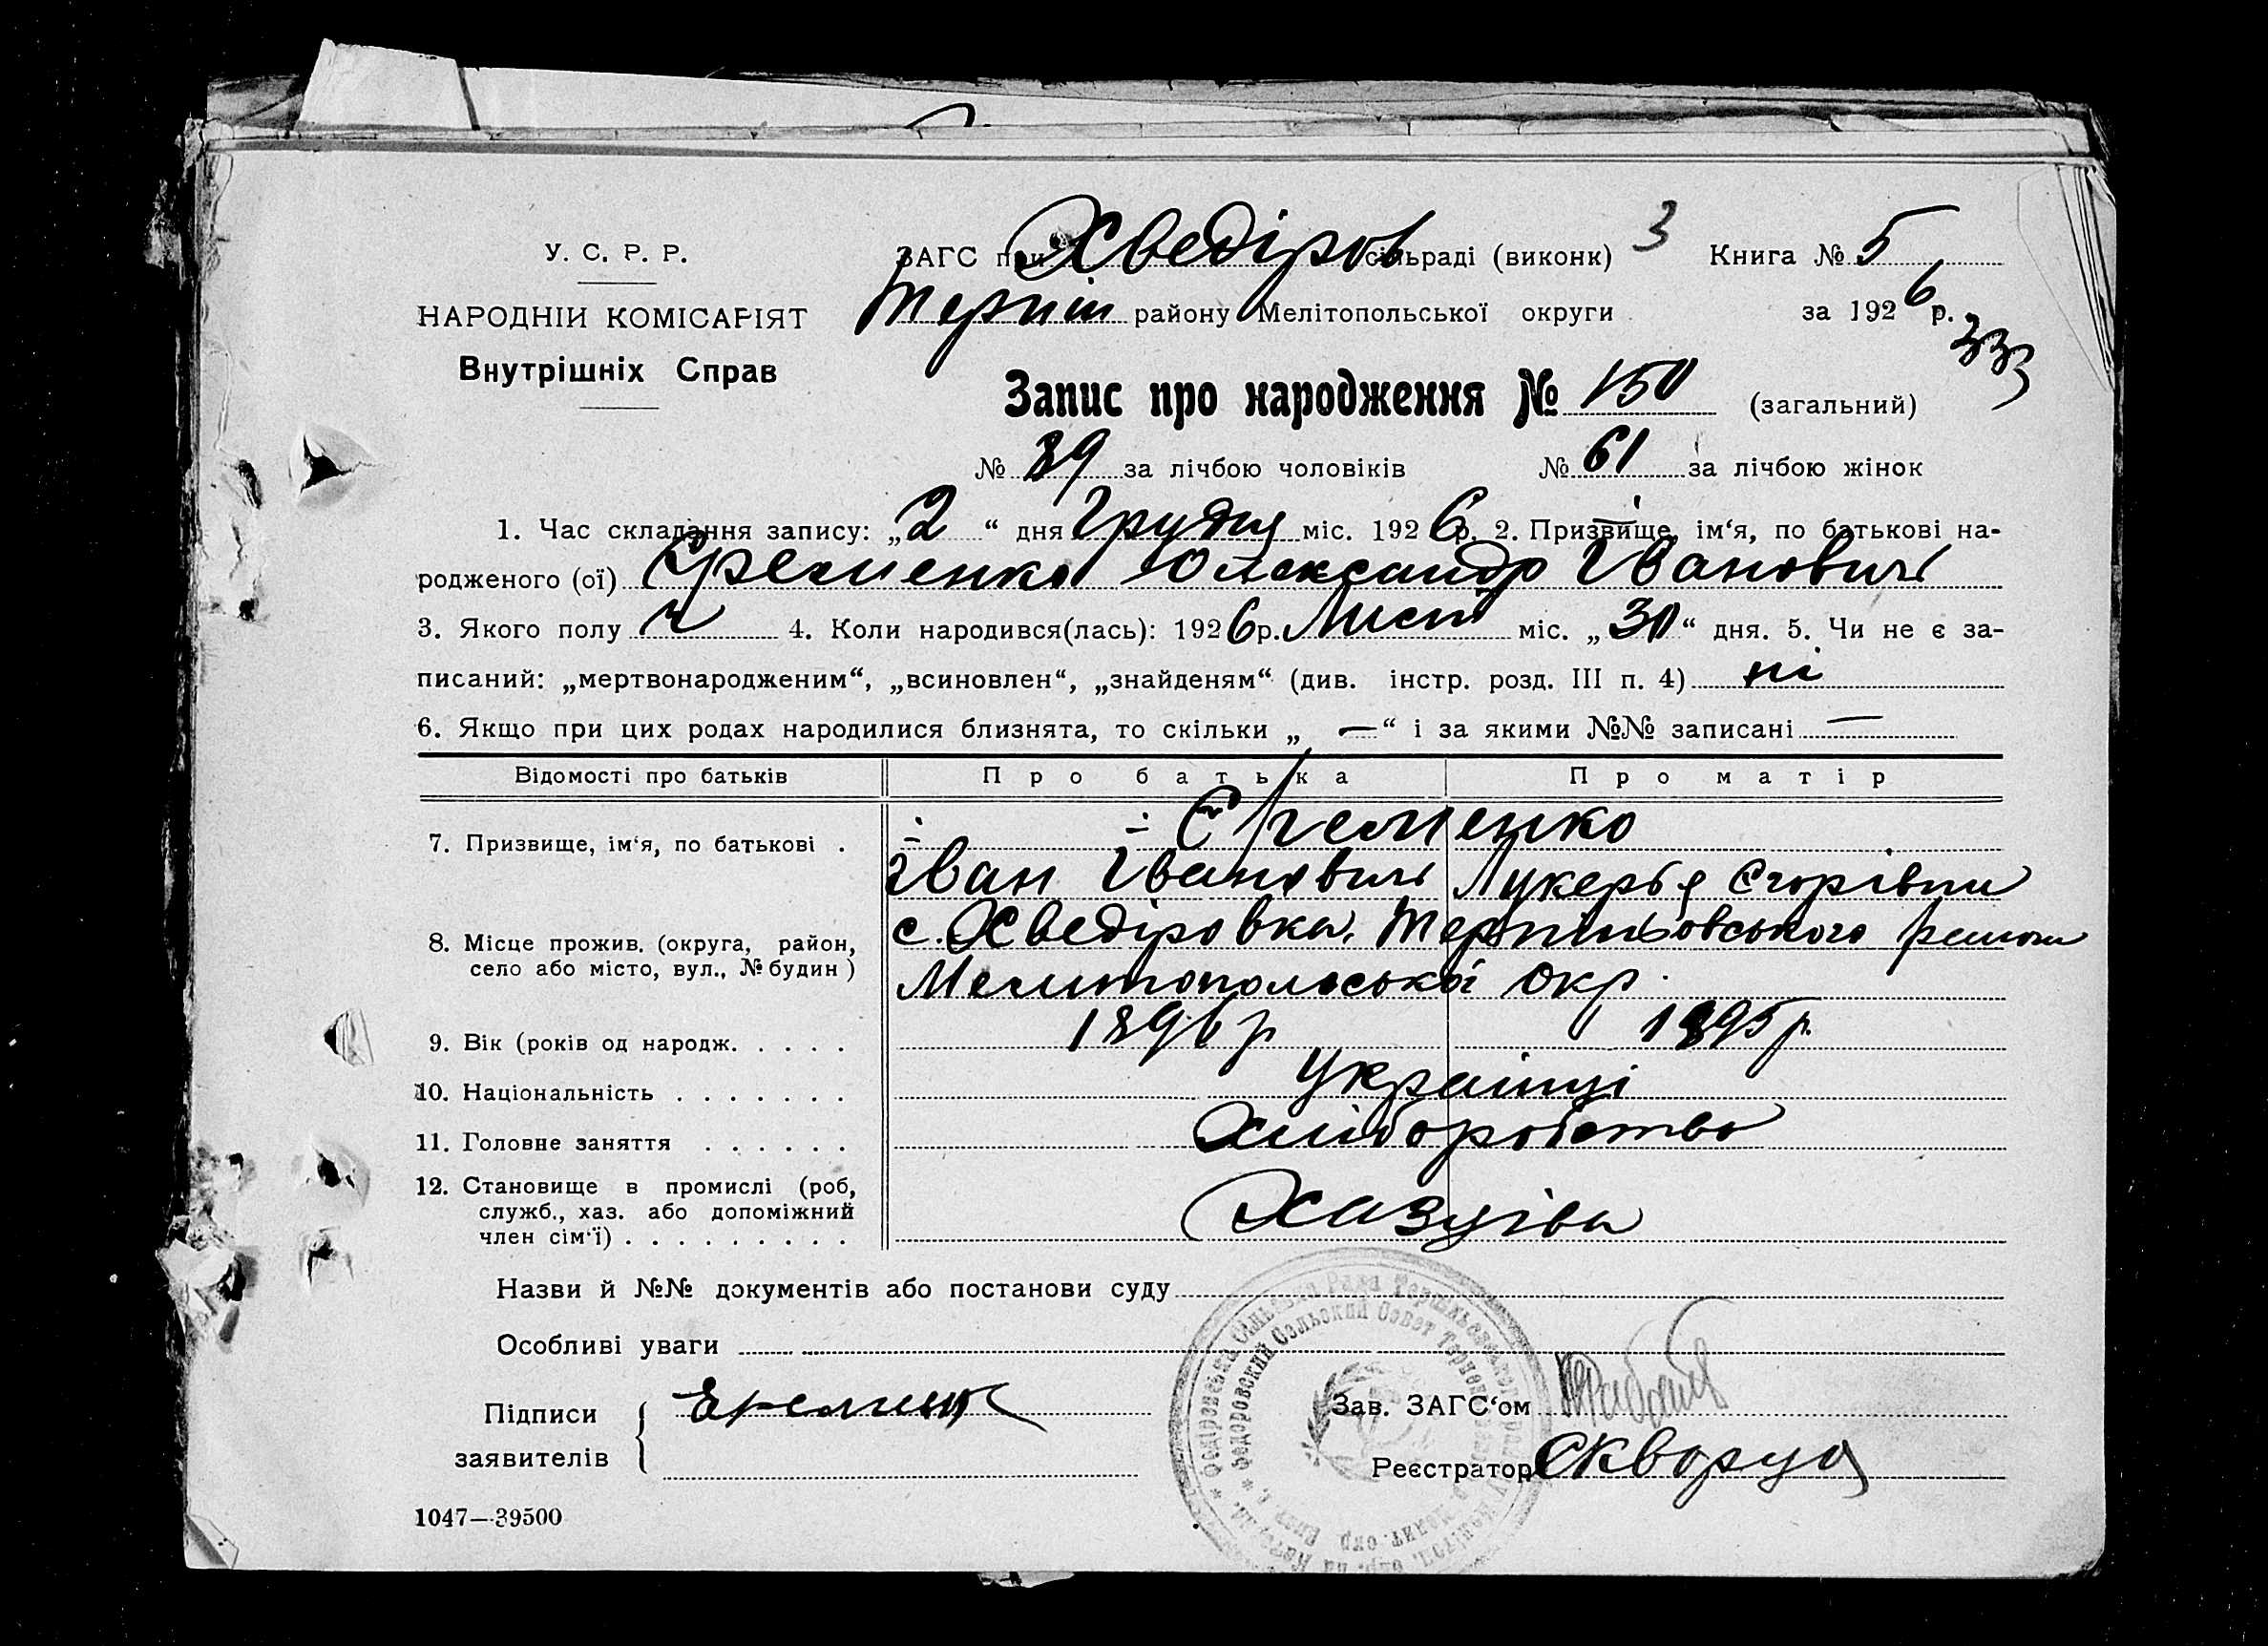 У. С. Р. Р.
НАРОДНІЙ КОМІСАРІЯТ
Внутрішніх Справ
ЗАГС при Хведіров сільраді (виконк) 3 Книга № 5
Терпін району Мелітопольської округи за 1926 р.
333
Запис про народження № 150 (загальний)
№ 89 за лічбою чоловіків № 61 за лічбою жінок
1. Час складання запису: „2“ дня Грудня міс. 1926 р. 2. Призвище, ім‘я, по батькові на-
родженого (ої) Єременко Олександр Іванович
3. Якого полу ч 4. Коли народився(лась): 1926 р. Лист міс. „30“ дня. 5. Чи не є за-
писаний: „мертвонародженим“, „всиновлен“, „знайденям“ (див. інстр. розд. III п. 4) ні
6. Якщо при цих родах народилися близнята, то скільки „ — “ і за якими №№ записані —
Відомості про батьків Про батька Про матір
7. Призвище, ім‘я, по батькові . Єременко
Іван Іванович Лукерья Єгорівни
8. Місце прожив. (округа, район, село або місто, вул., № будин) с. Хведіровка, Терпіньовського
Мелитопольської Окр.
9. Вік (років од народж. . . . . 1896 р 1895 р.
10. Національність . . . . . . . Українці
11. Головне заняття . . . . . . Хліборобство
12. Становище в промислі (роб, служб., хаз. або допоміжний член сім‘ї) . . . . . . . . . Хазяіва
Назви й №№ документів або постанови суду
Особливі уваги
Підписи заявителів
Зав. ЗАГС‘ом
Реєстратор Скворца
Федоровский Сельский Совет
1047—39500